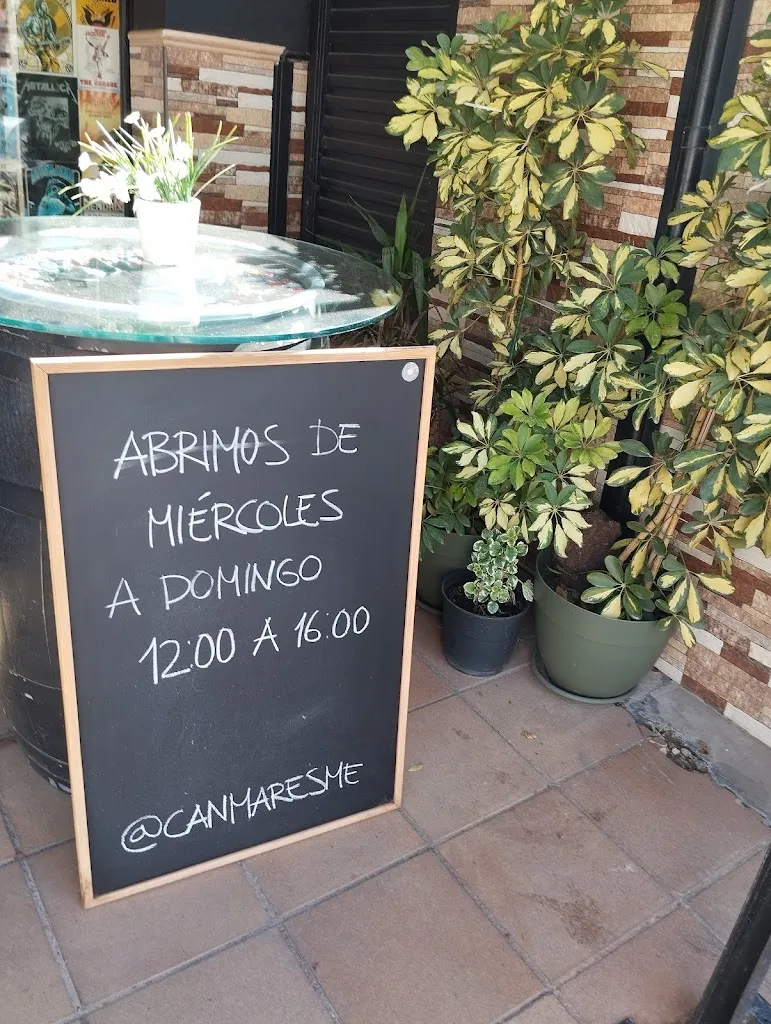 METALLICA
ABRIMOS DE
MIÉRCOLES
A DOMINGO
12:00 A 16:00
@CANMARESME